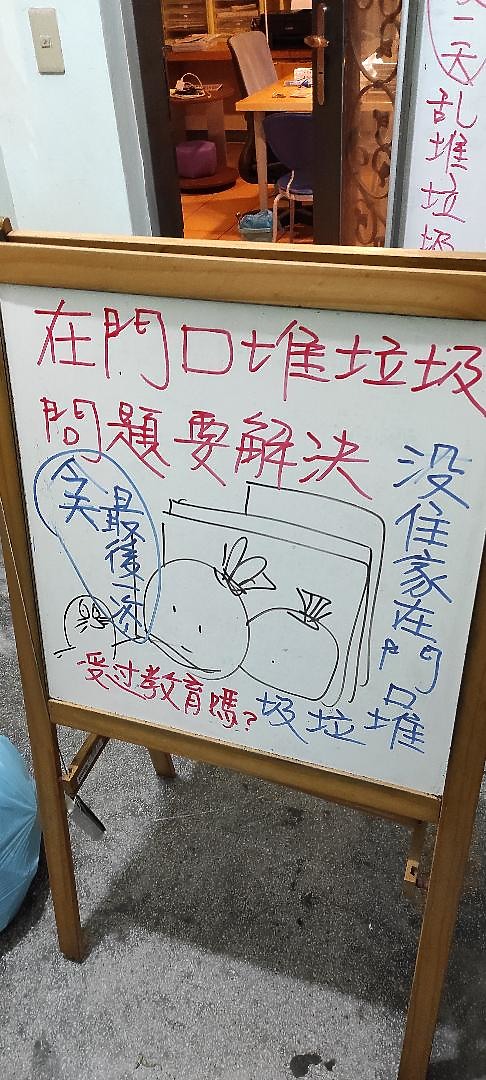 在門口堆垃圾
問題要解決
今天
最後一次
没住家在門口堆
垃圾
受过教育嗎?
一天
乱堆垃圾